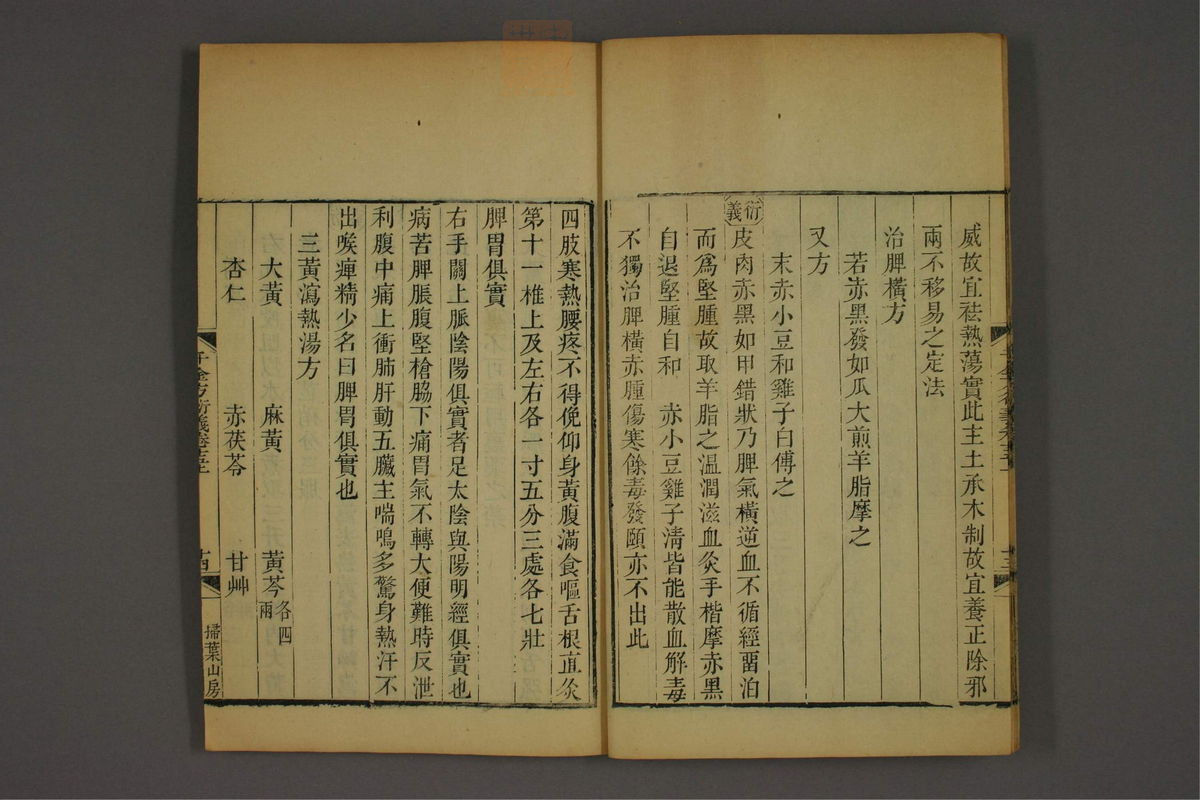 威故宜祛熱蕩實此主土承木制故宜養正除邪
兩不移易之定法
治脾橫方
若赤黑發如瓜大煎羊脂摩之
又方
末赤小豆和雞子白傅之
衍義
皮肉赤黑如甲錯狀乃脾氣橫逆血不循經畱泊
而為堅腫故取羊脂之溫潤滋血灸手楷摩赤黑
自退堅腫自和 赤小豆雞子清皆能散血解毒
不獨治脾橫赤腫傷寒餘毒發頤亦不出此
四肢寒熱腰疼不得俛仰身黃腹滿食嘔舌根直灸
第十一椎上及左右各一寸五分三處各七壯
脾胃俱實
右手關上脈陰陽俱實者足太陰與陽明經俱實也
病苦脾脹腹堅槍脇下痛胃氣不轉大便難時反泄
利腹中痛上衝肺肝動五臟主喘鳴多驚身熱汗不
出喉痺精少名曰脾胃俱實也
三黃瀉熱湯方
大黃 麻黃 黃芩各四兩
杏仁 赤茯苓 甘艸
千金方衍義卷十五上 十四 掃葉山房